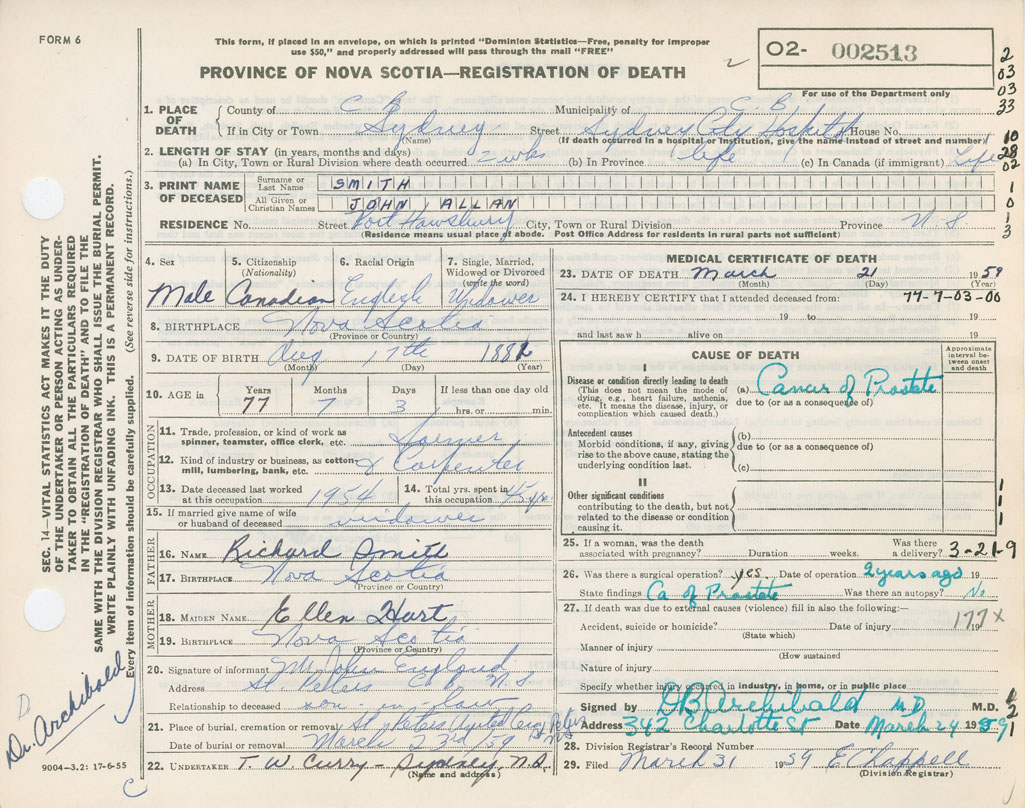 FORM 6
This form, if placed in an envelope, on which is printed "Dominion Statistics—Free, penalty for improper
use $50," and properly addressed will pass through the mail "FREE"
O2- 002513
PROVINCE OF NOVA SCOTIA—REGISTRATION OF DEATH
For use of the Department only
2
03
03
33
1. PLACE OF DEATH
County of C. B. Municipality of C. B.
If in City or Town Sydney Street Sydney City Hospital House No.
(Name) (If death occurred in a hospital or institution, give the name instead of street and number)
10
28
02
2. LENGTH OF STAY (in years, months and days)
(a) In City, Town or Rural Division where death occurred 2 wks (b) In Province life (c) In Canada (if immigrant) Life
3. PRINT NAME OF DECEASED
Surname or Last Name SMITH
All Given or Christian Names JOHN, ALLAN
1
0
1
3
RESIDENCE No. Street Port Hawsbury City, Town or Rural Division Province N S
(Residence means usual place of abode. Post Office Address for residents in rural parts not sufficient)
4. Sex Male
5. Citizenship (Nationality) Canadian
6. Racial Origin English
7. Single, Married, Widowed or Divorced (write the word) Widower
8. BIRTHPLACE Nova Scotia
(Province or Country)
9. DATE OF BIRTH Aug 17th 1882
(Month) (Day) (Year)
10. AGE in
Years 77
Months 7
Days 3
If less than one day old
hrs. or min.
OCCUPATION
11. Trade, profession, or kind of work as
spinner, teamster, office clerk, etc. Farmer
12. Kind of industry or business, as cotton-
mill, lumbering, bank, etc. & Carpenter
13. Date deceased last worked
at this occupation 1954
14. Total yrs. spent in
this occupation 45 yrs
15. If married give name of wife
or husband of deceased widower
FATHER
16. NAME Richard Smith
17. BIRTHPLACE Nova Scotia
(Province or Country)
MOTHER
18. MAIDEN NAME Ellen Hart
19. BIRTHPLACE Nova Scotia
(Province or Country)
20. Signature of informant Mr John England
Address St. Peters C.B. N.S.
Relationship to deceased son-in-law
21. Place of burial, cremation or removal St. Peters United Cem St Peters
Date of burial or removal March 23rd/59 N S
22. UNDERTAKER T. W. Curry - Sydney, N.S.
(Name and address)
MEDICAL CERTIFICATE OF DEATH
23. DATE OF DEATH March 21 1959
(Month) (Day) (Year)
24. I HEREBY CERTIFY that I attended deceased from: 77-7-03-00
19 to 19
and last saw h alive on 19
CAUSE OF DEATH
Approximate interval between onset and death
I
Disease or condition directly leading to death
(This does not mean the mode of
dying, e.g., heart failure, asthenia,
etc. It means the disease, injury, or
complication which caused death.)
(a) Cancer of Prostate
due to (or as a consequence of)
Antecedent causes
Morbid conditions, if any, giving
rise to the above cause, stating the
underlying condition last.
(b)
due to (or as a consequence of)
(c)
II
Other significant conditions
contributing to the death, but not
related to the disease or condition
causing it.
1
1
1
25. If a woman, was the death
associated with pregnancy? Duration weeks. Was there
a delivery? 3-21-9
26. Was there a surgical operation? yes. Date of operation 2 years ago 19
State findings Ca of Prostate Was there an autopsy? No
27. If death was due to external causes (violence) fill in also the following:—
Accident, suicide or homicide? Date of injury 19
177X
(State which)
Manner of injury
(How sustained
Nature of injury
Specify whether injury occurred in industry, in home, or in public place
Signed by DB Archibald M.D. M.D.
Address 342 Charlotte St Date March 24 1959
1
2
1
28. Division Registrar's Record Number
29. Filed March 31 1959 E Chappell
(Division Registrar)
SEC. 14—VITAL STATISTICS ACT MAKES IT THE DUTY
OF THE UNDERTAKER OR PERSON ACTING AS UNDER-
TAKER TO OBTAIN ALL THE PARTICULARS REQUIRED
IN THE "REGISTRATION OF DEATH" AND TO FILE THE
SAME WITH THE DIVISION REGISTRAR WHO SHALL ISSUE THE BURIAL PERMIT.
WRITE PLAINLY WITH UNFADING INK. THIS IS A PERMANENT RECORD.
Every item of information should be carefully supplied. (See reverse side for instructions.)
D
Dr. Archibald
9004-3.2: 17-6-55
C